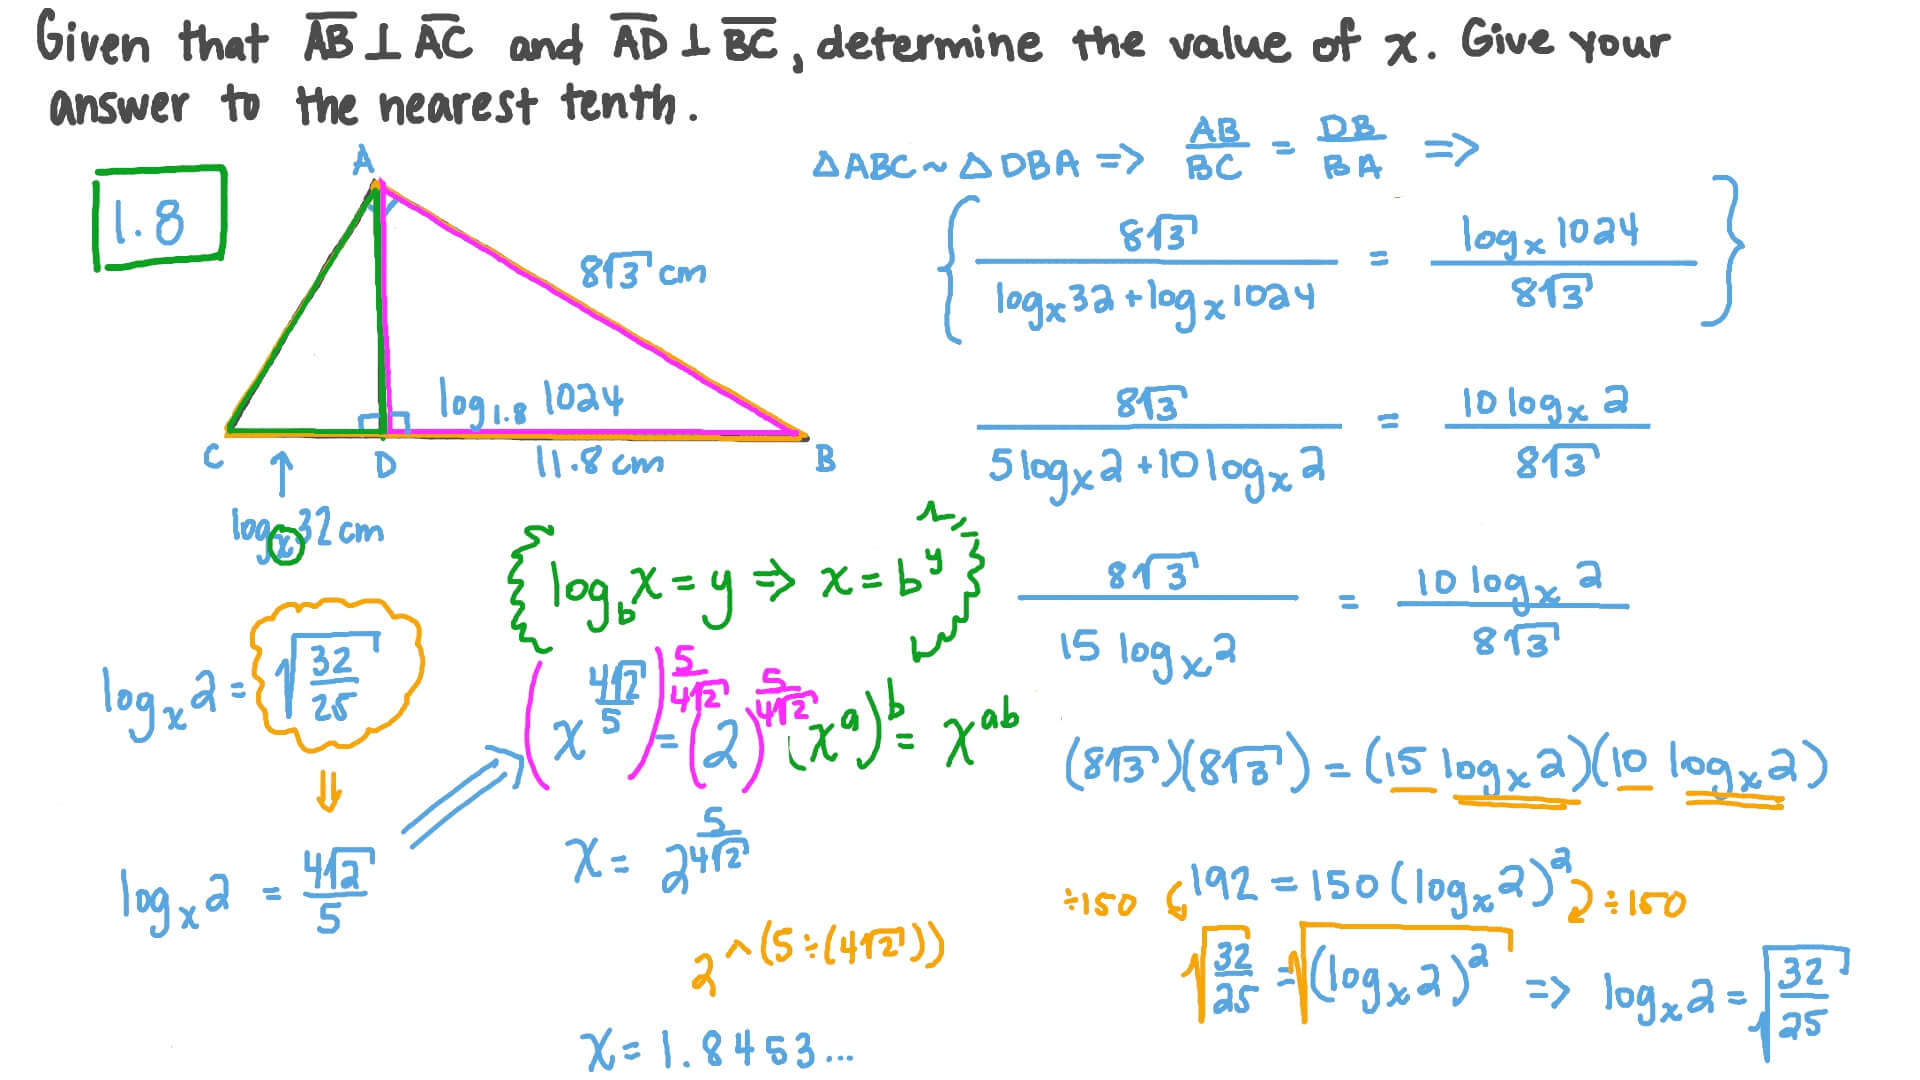 Given that A̅B̅ ⊥ A̅C̅ and A̅D̅ ⊥ B̅C̅, determine the value of x. Give your
answer to the nearest tenth.
1.8
A
8√3 cm
log₁.₈ 1024
C
D
11.8 cm
B
logₓ32 cm
△ABC ~ △DBA => AB/BC = DB/BA =>
{ 8√3/(logₓ32 + logₓ1024) = logₓ1024/8√3 }
8√3/(5 logₓ2 + 10 logₓ2) = 10 logₓ2/8√3
8√3/(15 logₓ2) = 10 logₓ2/8√3
(8√3)(8√3) = (15 logₓ2)(10 logₓ2)
÷150 192 = 150 (logₓ2)² ÷150
√(32/25) = √((logₓ2)²) => logₓ2 = √(32/25)
logₓ2 = √(32/25)
⇓
logₓ2 = 4√2/5
{ log_b x = y => x = b^y }
(x^(4√2/5))^(5/(4√2)) = (2)^(5/(4√2))
(x^a)^b = x^(ab)
x = 2^(5/(4√2))
2^(5÷(4√2))
x = 1.8453...